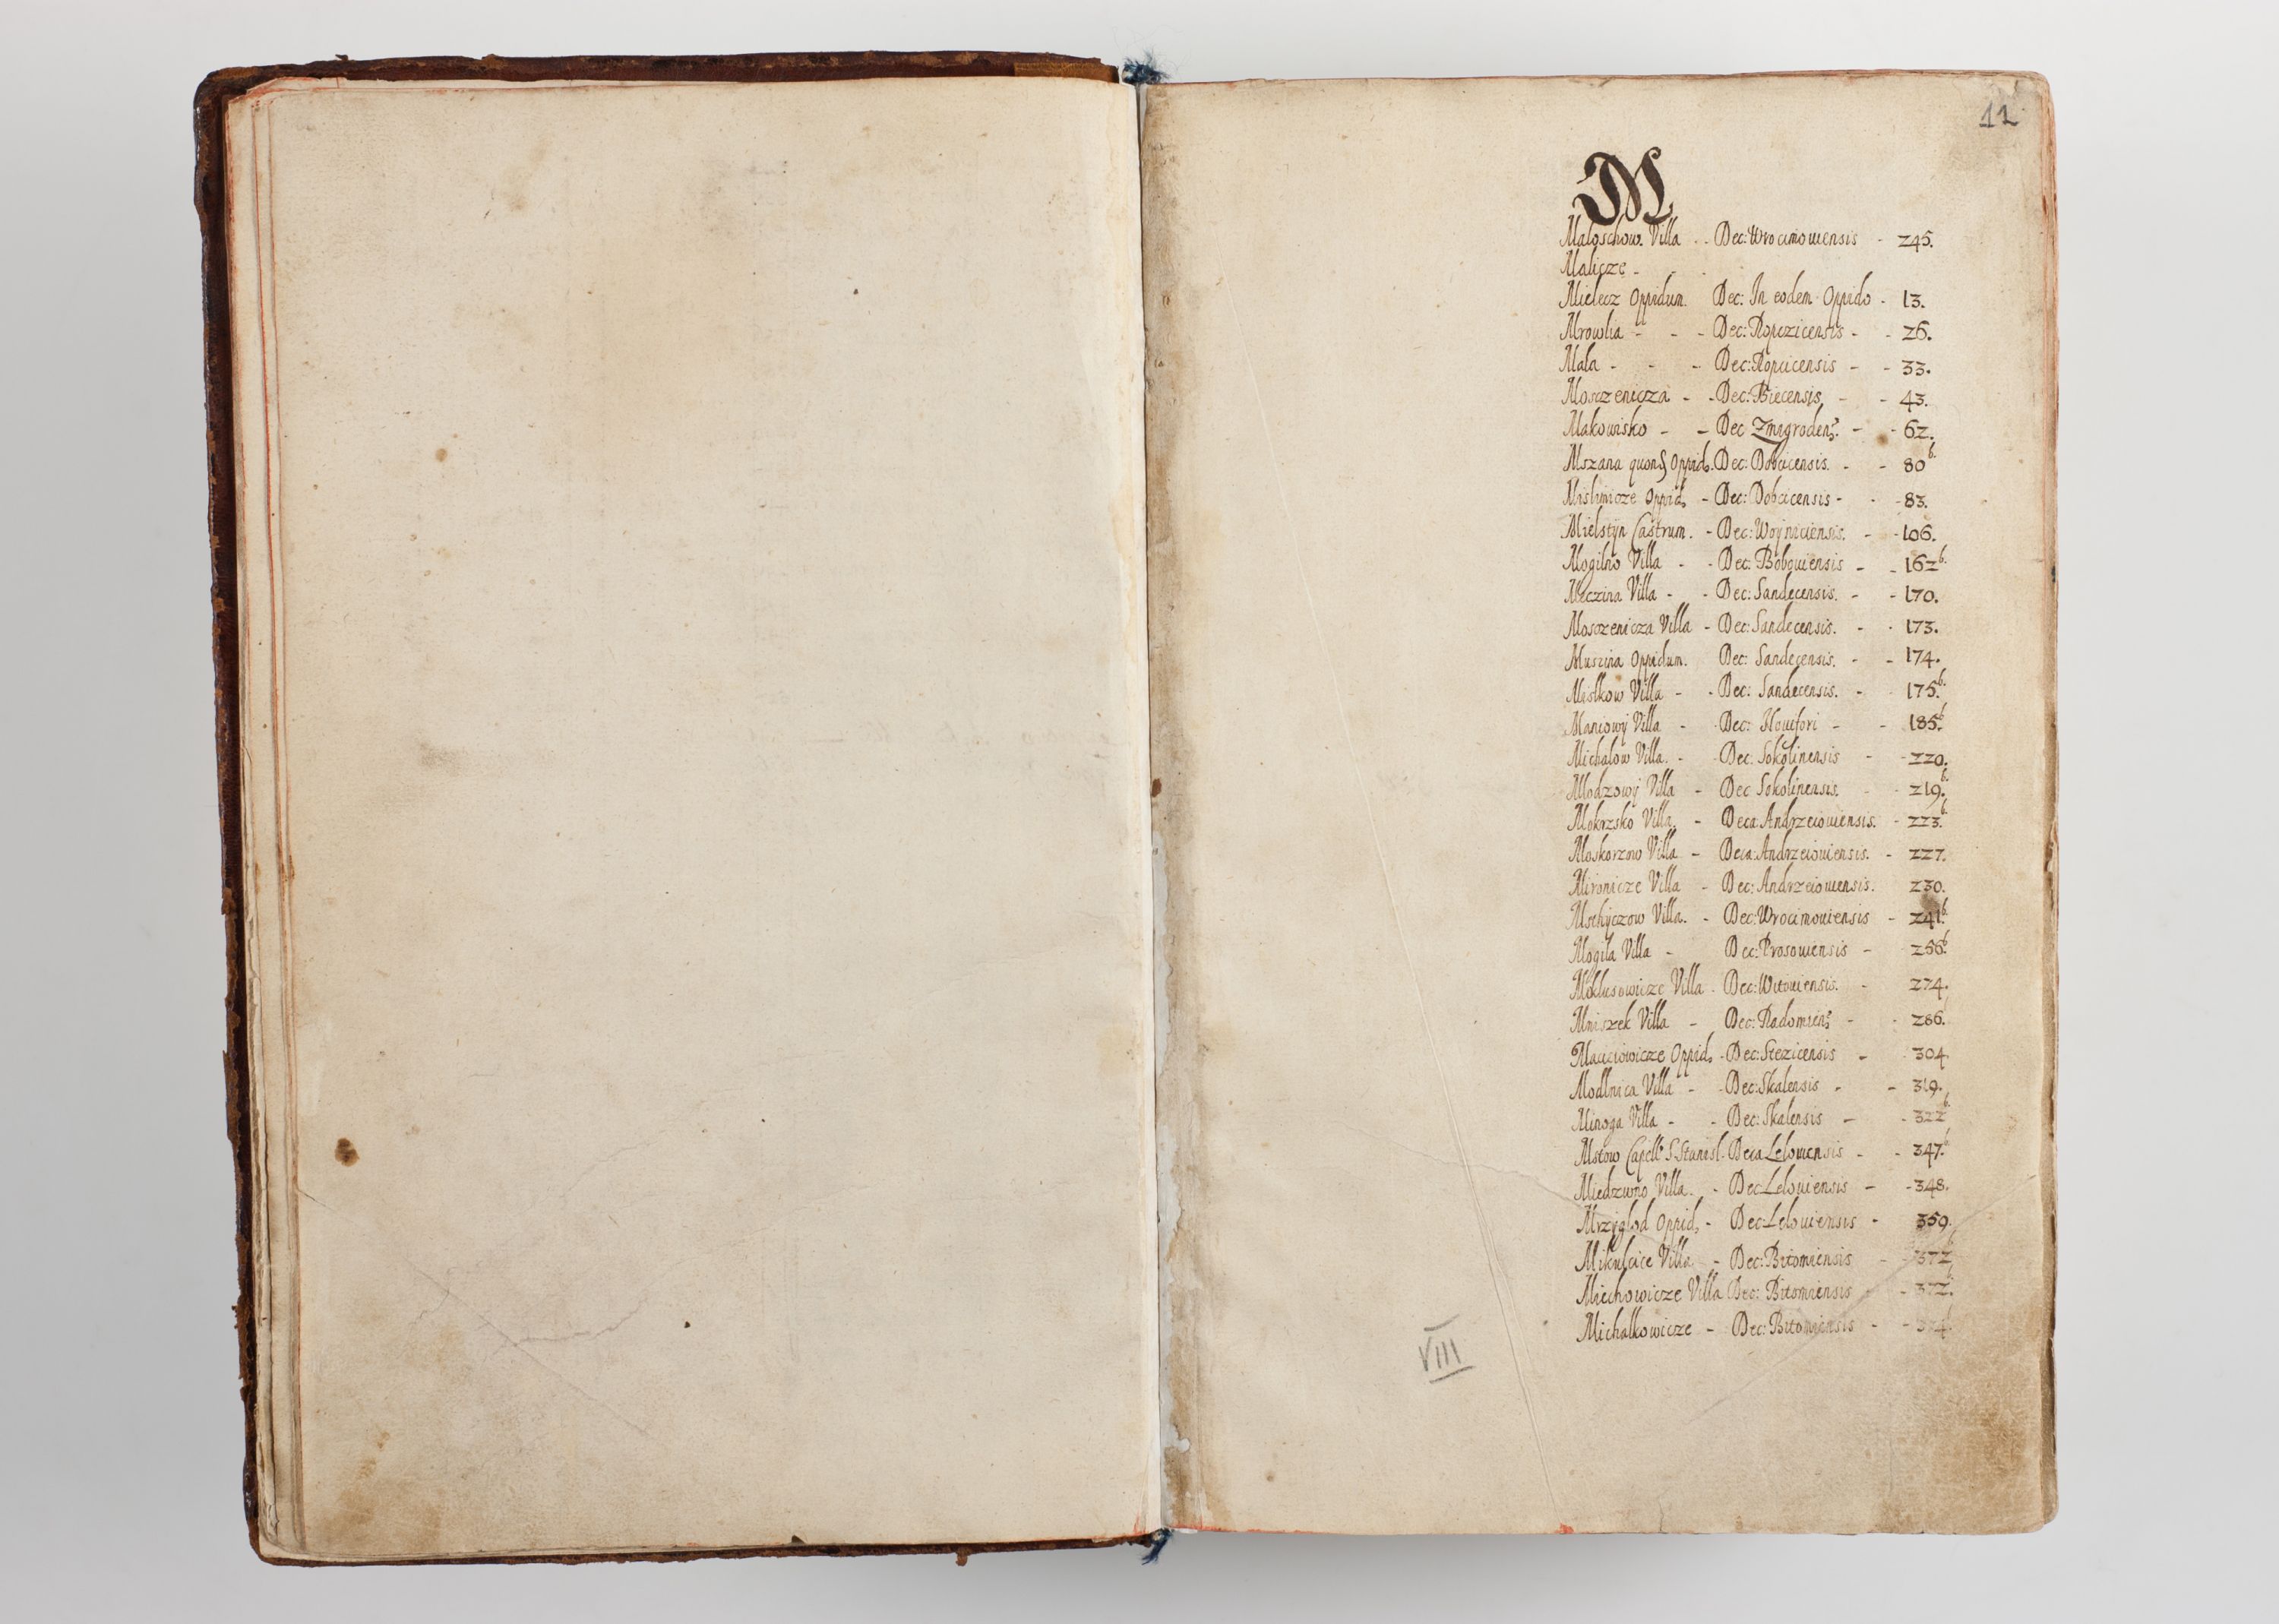 11
M
Maloschow. Villa . . Dec: Wrocimouiensis - 245.
Malicze -
Mielecz Oppidum. Dec: In eodem Oppido - 13.
Mrowlia - - - Dec: Ropczicensis - - 26.
Mala - - - Dec: Ropcicensis - - 33.
Mosczenicza - - Dec: Biecensis - - 43.
Makowisko - - Dec Zmigrodens. - - 62.
Mszana quond Oppid. Dec: Dobcicensis. - - 80 b.
Mislimicze Oppid. - Dec: Dobcicensis - - 83.
Mielstyn Castrum. - Dec: Woyniciensis. - - 106.
Mogilno Villa - - Dec: Bobouiensis - - 162 b.
Meczina Villa - - Dec: Sandecensis. - - 170.
Mosczenicza Villa - Dec: Sandecensis. - - 173.
Muszina Oppidum. Dec: Sandecensis. - - 174.
Mistkow Villa - - Dec: Sandecensis. - 175. b.
Maniowy Villa - - Dec: Nouifori - - 185. b
Michalow Villa. - - Dec: Sokolinensis - - 220.
Mlodzowy Villa - Dec Sokolinensis. - - 219. b.
Mokrzsko Villa. - Deca: Andrzeiouiensis. - 223. b
Moskorzow Villa - Deca: Andrzeiouiensis. - 227.
Mironicze Villa - Dec: Andrzeiouiensis. 230.
Mschyczow Villa. - Dec: Wrocimouiensis - 241. b
Mogila Villa - Dec: Prosouiensis - 256. b
Moklusowicze Villa - Dec: Witouiensis. - 274.
Mniszek Villa - Dec: Radomiens - - 286.
Maciciowicze Oppid. - Dec: Stezicensis - - 304.
Modlnica Villa - - Dec: Skalensis - - 319.
Minoga Villa - - Dec: Skalensis - - 322 b.
Mstow Capell S. Stanisl - Deca Lelouiensis - - 347. b
Miedzwno Villa. - Dec Lelouiensis - - 348.
Mrzyglod Oppid. - Dec: Lelouiensis - 359.
Mikulcice Villa - Dec: Bitomiensis - - 372
Miechowicze Villa Dec: Bitomiensis - 372.
Michalkowicze - Dec: Bitomiensis - - 374
VIII